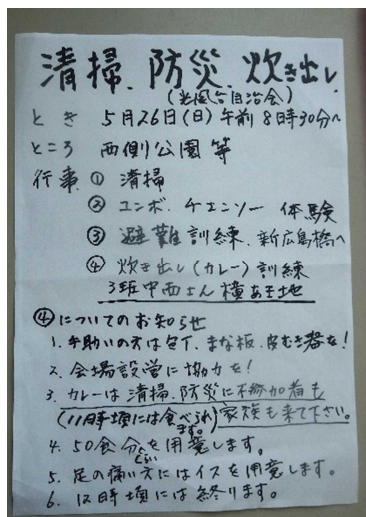 清掃、防災、炊き出し
(光風台自治会)
とき 5月26日(日)午前8時30分〜
ところ 西側公園等
行事 ① 清掃
② ユンボ、チェンソー 体験
③ 避難訓練、新広島橋へ
④ 炊き出し(カレー)訓練
3班中西さん横あき地
④についてのお知らせ
1. 手助いの方は包丁、まな板、皮むき器を!
2. 会場設営に協力を!
3. カレーは清掃、防災に不参加者も
(11時頃には食べられます。) 家族も来て下さい。
4. 50食分ぐらいを用意します。
5. 足の痛い方にはイスを用意します。
6. 12時頃には終ります。